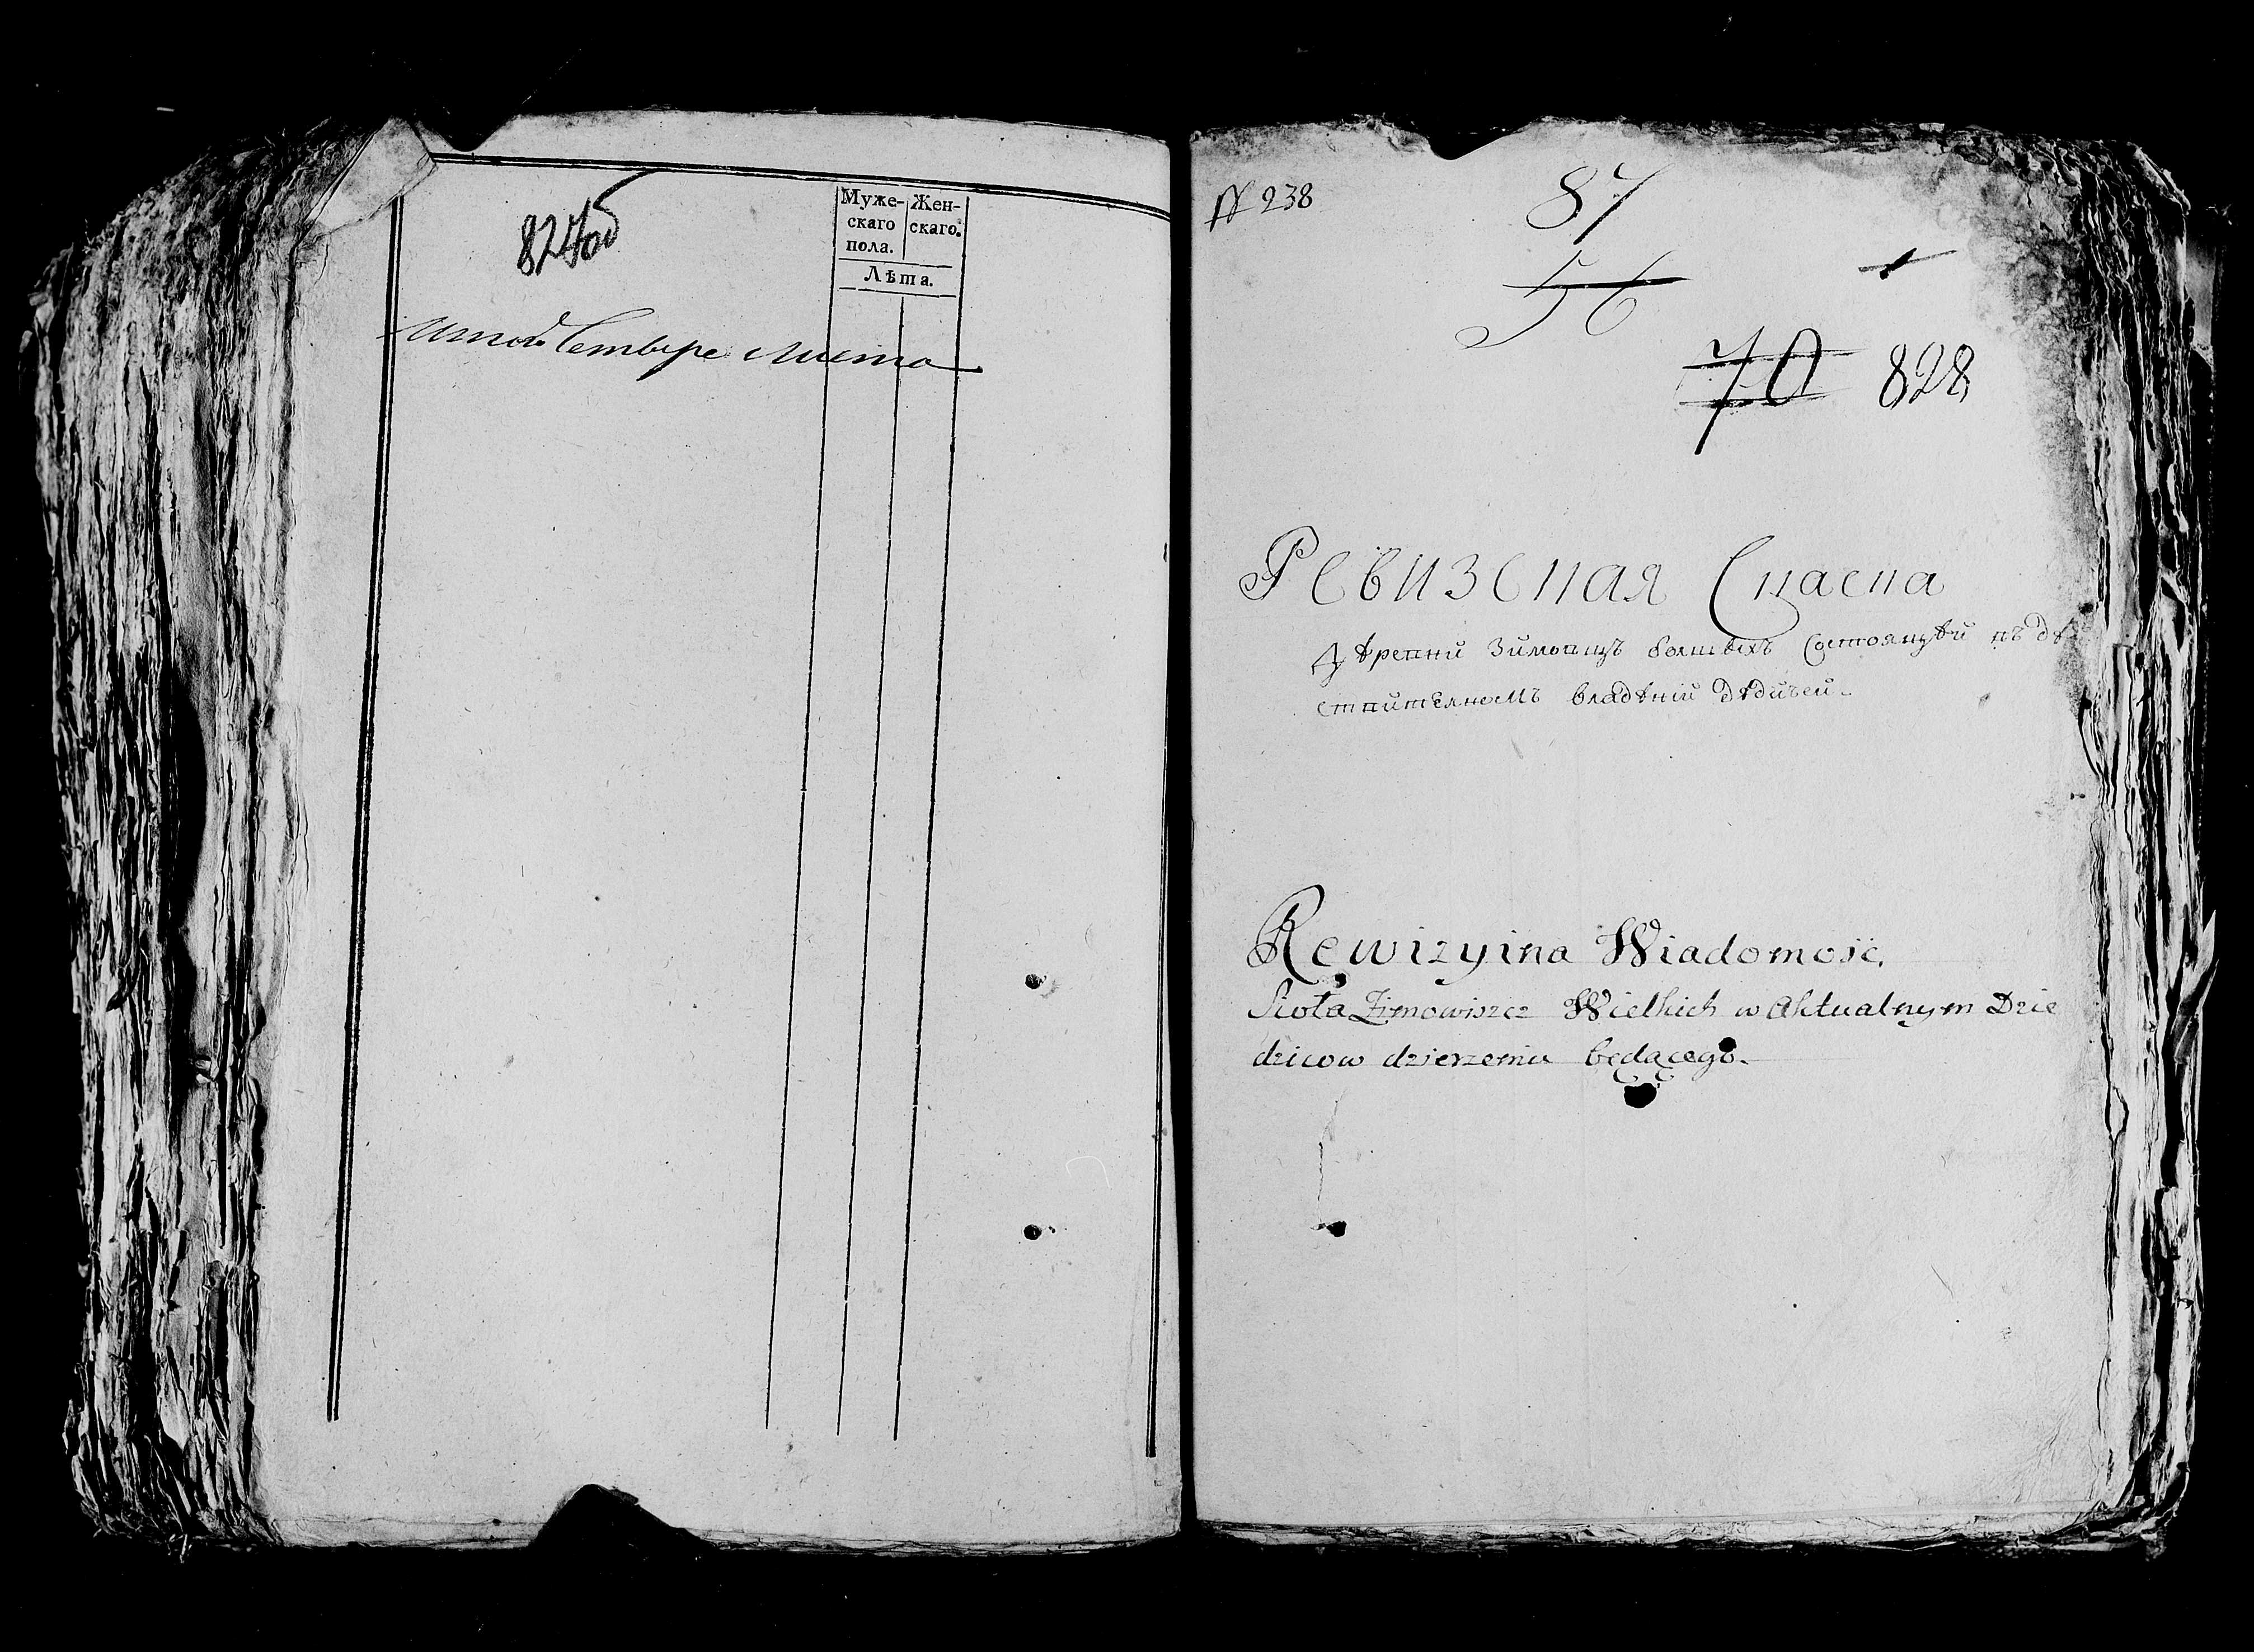 827об
Муже-
скаго
пола.
Жен-
скаго.
Лѣта.
Итого Четыре листа
№ 238
87
56
70 828
Ревизская Сказка
Дѣревни Зимовищъ болшихъ Состоящѣй въ дѣ
ствителномъ владѣнiи дѣдичей.
Rewizyina Wiadomość
Sioła Zimowiszcz Wielkich w Aktualnym Dzie
dzicow dzierzeniu będącego.